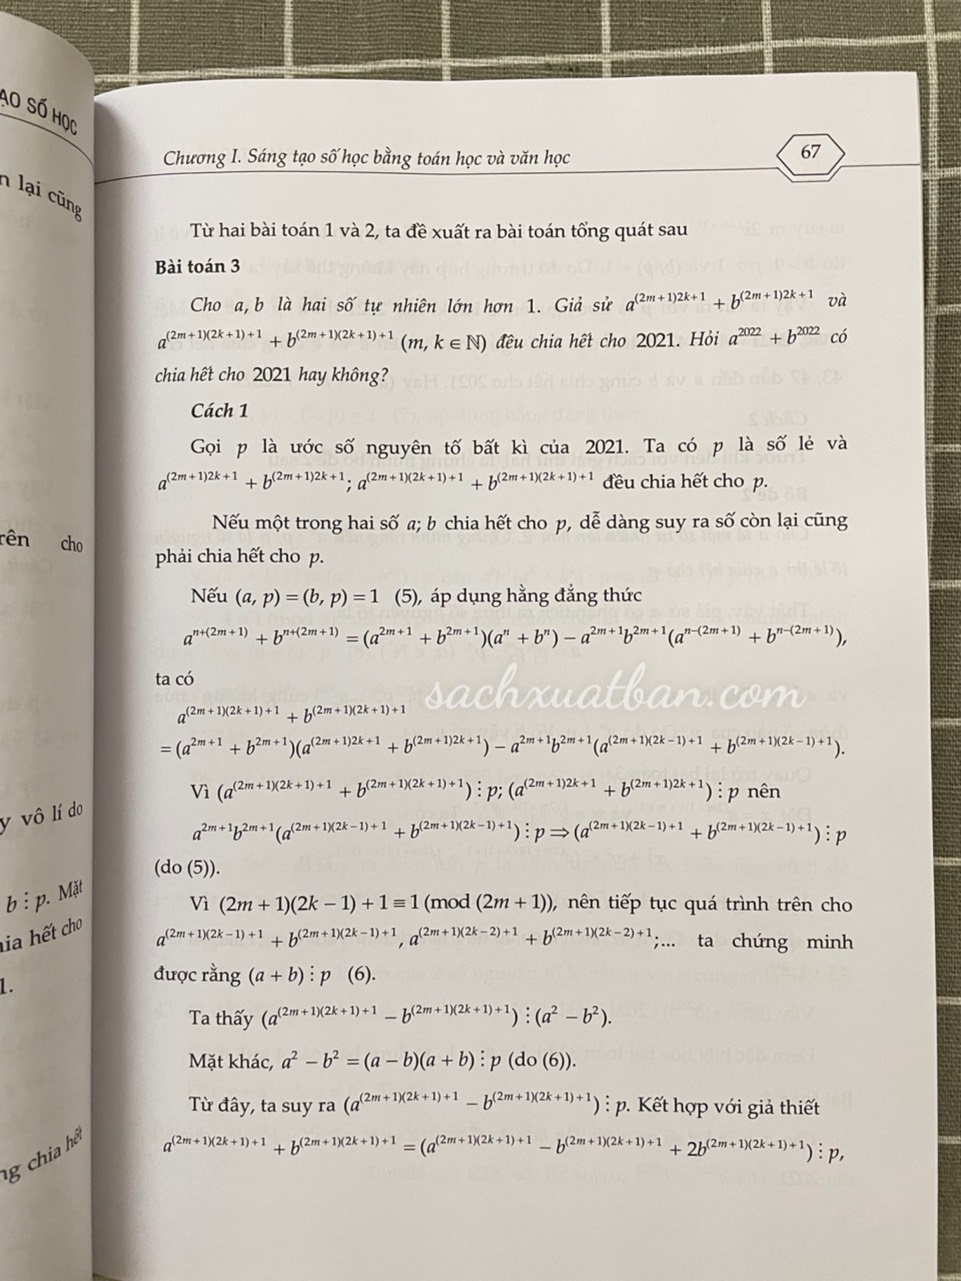 ẠO SỐ HỌC
n lại cũng
rên cho
y vô lí do
b ⋮ p. Mặt
hia hết cho
1.
ng chia hết
Chương I. Sáng tạo số học bằng toán học và văn học
67
Từ hai bài toán 1 và 2, ta đề xuất ra bài toán tổng quát sau
Bài toán 3
Cho a, b là hai số tự nhiên lớn hơn 1. Giả sử a^(2m+1)2k+1 + b^(2m+1)2k+1 và
a^(2m+1)(2k+1)+1 + b^(2m+1)(2k+1)+1 (m, k ∈ ℕ) đều chia hết cho 2021. Hỏi a^2022 + b^2022 có
chia hết cho 2021 hay không?
Cách 1
Gọi p là ước số nguyên tố bất kì của 2021. Ta có p là số lẻ và
a^(2m+1)2k+1 + b^(2m+1)2k+1; a^(2m+1)(2k+1)+1 + b^(2m+1)(2k+1)+1 đều chia hết cho p.
Nếu một trong hai số a; b chia hết cho p, dễ dàng suy ra số còn lại cũng
phải chia hết cho p.
Nếu (a, p) = (b, p) = 1 (5), áp dụng hằng đẳng thức
a^n+(2m+1) + b^n+(2m+1) = (a^2m+1 + b^2m+1)(a^n + b^n) − a^2m+1 b^2m+1 (a^n−(2m+1) + b^n−(2m+1)),
ta có
sachxuatban.com
a^(2m+1)(2k+1)+1 + b^(2m+1)(2k+1)+1
= (a^2m+1 + b^2m+1)(a^(2m+1)2k+1 + b^(2m+1)2k+1) − a^2m+1 b^2m+1 (a^(2m+1)(2k−1)+1 + b^(2m+1)(2k−1)+1).
Vì (a^(2m+1)(2k+1)+1 + b^(2m+1)(2k+1)+1) ⋮ p; (a^(2m+1)2k+1 + b^(2m+1)2k+1) ⋮ p nên
a^2m+1 b^2m+1 (a^(2m+1)(2k−1)+1 + b^(2m+1)(2k−1)+1) ⋮ p ⇒ (a^(2m+1)(2k−1)+1 + b^(2m+1)(2k−1)+1) ⋮ p
(do (5)).
Vì (2m + 1)(2k − 1) + 1 ≡ 1 (mod (2m + 1)), nên tiếp tục quá trình trên cho
a^(2m+1)(2k−1)+1 + b^(2m+1)(2k−1)+1, a^(2m+1)(2k−2)+1 + b^(2m+1)(2k−2)+1;... ta chứng minh
được rằng (a + b) ⋮ p (6).
Ta thấy (a^(2m+1)(2k+1)+1 − b^(2m+1)(2k+1)+1) ⋮ (a² − b²).
Mặt khác, a² − b² = (a − b)(a + b) ⋮ p (do (6)).
Từ đây, ta suy ra (a^(2m+1)(2k+1)+1 − b^(2m+1)(2k+1)+1) ⋮ p. Kết hợp với giả thiết
a^(2m+1)(2k+1)+1 + b^(2m+1)(2k+1)+1 = (a^(2m+1)(2k+1)+1 − b^(2m+1)(2k+1)+1 + 2b^(2m+1)(2k+1)+1) ⋮ p,